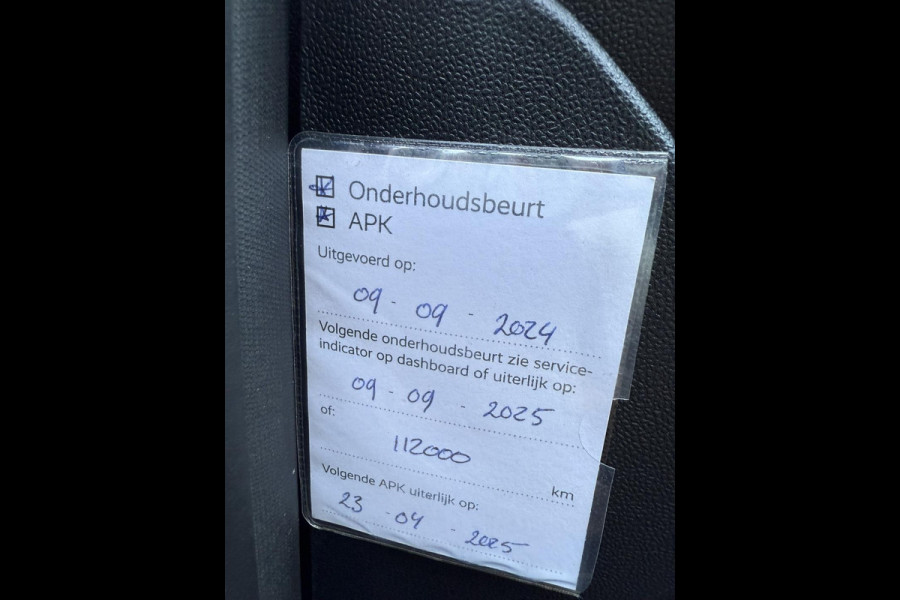 Onderhoudsbeurt
APK
Uitgevoerd op:
09 - 09 - 2024
Volgende onderhoudsbeurt zie service-
indicator op dashboard of uiterlijk op:
09 - 09 - 2025
of:
112000
km
Volgende APK uiterlijk op:
23 - 04 - 2025